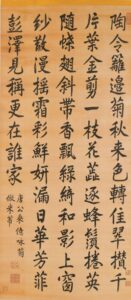 陶令籬邊菊秋來色轉佳翠攢千
片葉金剪一枝花蕊逐蜂鬚捲英
隨蝶翅斜帶香飄綠綺和影上窗
紗散漫搖霜彩鮮妍漏日華芳菲
彭澤見稱更在誰家
唐公乘億詠菊
倣米芾